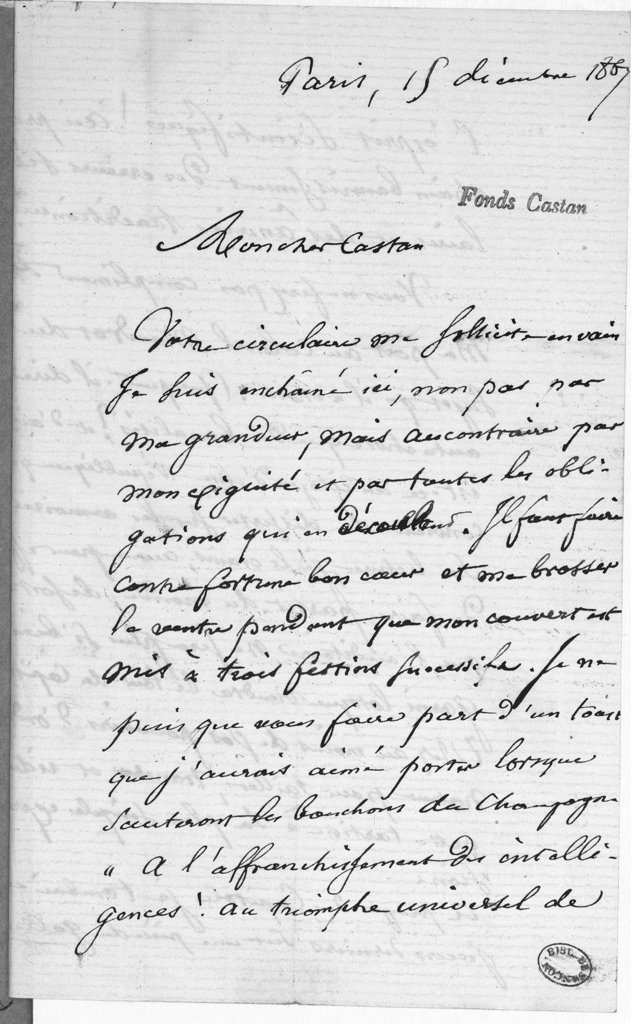 Paris, 15 décembre 1867
Fonds Castan
Mon cher Castan
Votre circulaire me sollicite en vain
Je suis enchaîné ici, non pas par
ma grandeur, mais au contraire par
mon exiguité et par toutes les obli-
gations qui en découlent. Il faut faire
contre fortune bon cœur et me brosser
le ventre pendant que mon couvert est
mis à trois festins successifs. Je ne
puis que vous faire part d'un toast
que j'aurais aimé porter lorsque
sauteront les bouchons du Champagne
" A l'affranchissement des intelli-
gences! au triomphe universel de
BIBL. DE BESANÇON